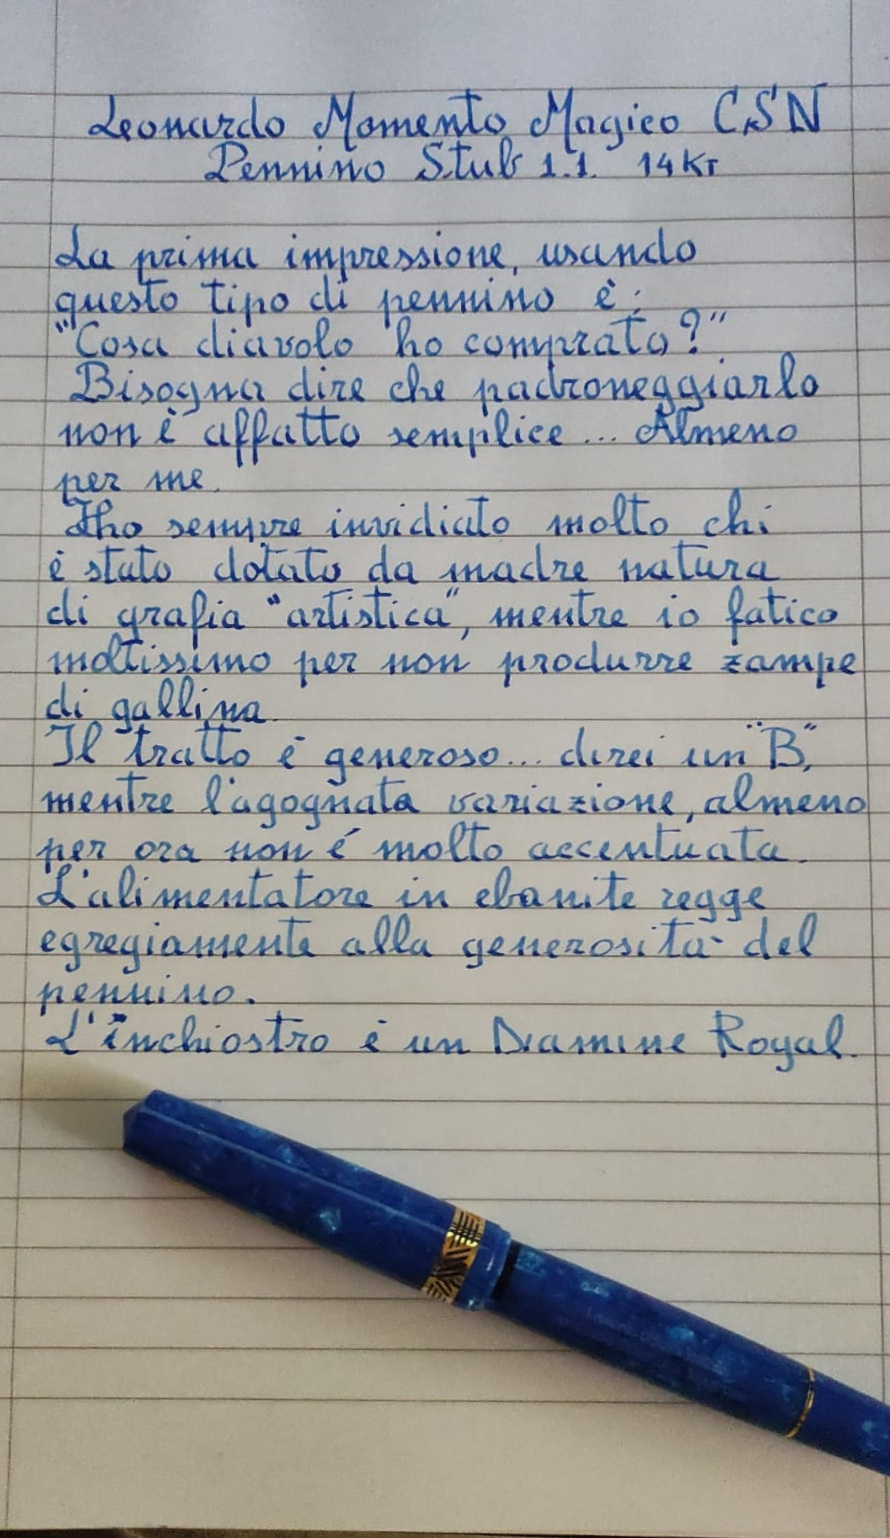 Leonardo Momento Magico CSN
Pennino Stub 1.1. 14Kt
La prima impressione, usando
questo tipo di pennino è:
"Cosa diavolo ho comprato?"
Bisogna dire che padroneggiarlo
non è affatto semplice... Almeno
per me.
Iho sempre invidiato molto chi
è stato dotato da madre natura
di grafia "artistica", mentre io fatico
moltissimo per non produrre zampe
di gallina.
Il tratto è generoso... direi un "B",
mentre l'agognata variazione, almeno
per ora non é molto accentuata.
L'alimentatore in ebanite regge
egregiamente alla generosità del
pennino.
L'inchiostro è un Diamine Royal.